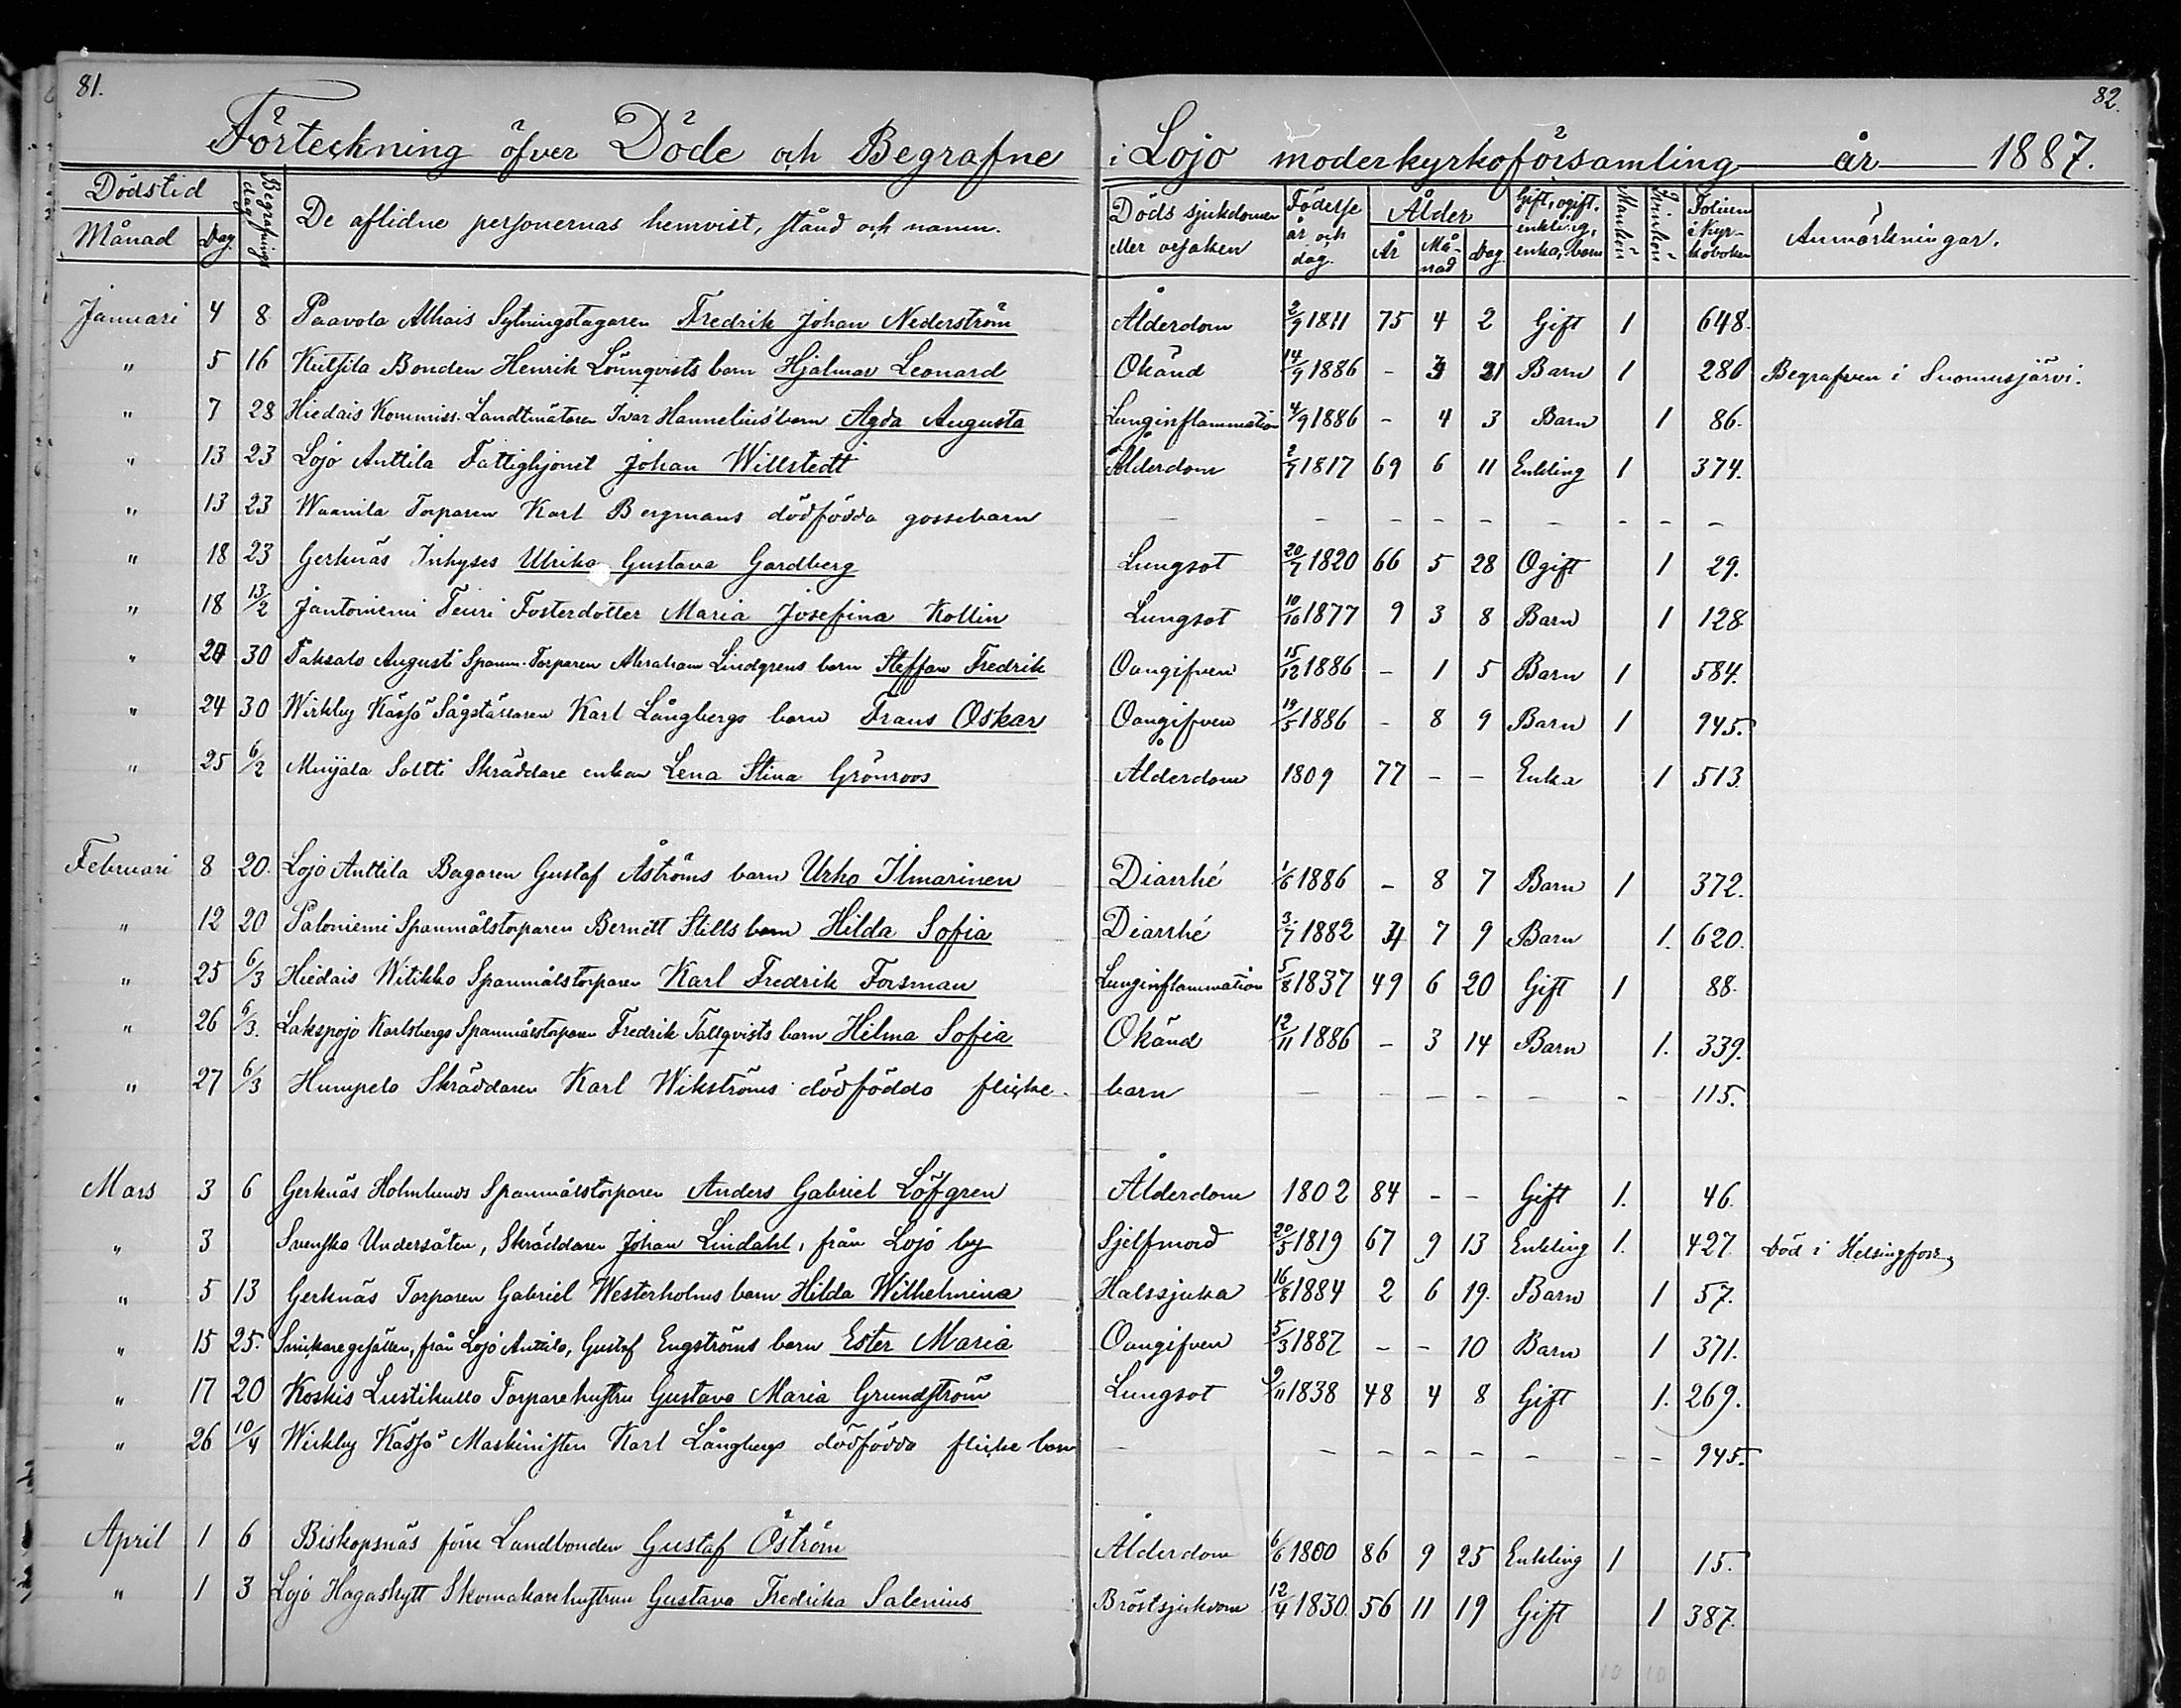 81.
82.
Förteckning öfver Döde och Begrafne i Lojo moderkyrkoförsamling år 1887.
Dödstid
Månad Dag.
Begrafningsdag
De aflidne personernas hemvist, stånd och namn.
Döds sjukdomen eller orsaken
Födelse år och dag.
Ålder
År Månad Dag
Gift, ogift, enkling, enka, barn
Mankön
Qvinkön
Folien i Kyrkoboken
Anmärkningar.
Januari 4 8 Paavola Alhais Sytningstagaren Fredrik Johan Nederström Ålderdom 2/9 1811 75 4 2 Gift 1 648.
" 5 16 Kutsila Bonden Henrik Lönnqvists barn Hjalmar Leonard Okänd 14/9 1886 - 3 21 Barn 1 280 Begrafven i Suomusjärvi.
" 7 28 Hiedais Kommiss. Landtmätaren Ivar Hannelius' barn Agda Augusta Lunginflammation 4/9 1886 - 4 3 Barn 1 86.
" 13 23 Lojo Anttila Fattighjonet Johan Willstedt Ålderdom 2/7 1817 69 6 11 Enkling 1 374.
" 13 23 Waanila Torparen Karl Bergmans dödfödda gossebarn - - - - - - - - -
" 18 23 Gerknäs Inhyses Ulrika Gustava Gardberg Lungsot 20/7 1820 66 5 28 Ogift 1 29.
" 18 13/2 Jantoniemi Teiri Fosterdotter Maria Josefina Kollin Lungsot 10/10 1877 9 3 8 Barn 1 128.
" 20 30 Taksalo Augusti Spanm. Torparen Abraham Lindgrens barn Steffan Fredrik Oangifven 15/12 1886 - 1 5 Barn 1 584.
" 24 30 Wirkby Kåsjö Sågställaren Karl Långbergs barn Frans Oskar Oangifven 19/5 1886 - 8 9 Barn 1 945.
" 25 6/2 Muijala Soltti Skräddare enkan Lena Stina Grönroos Ålderdom 1809 77 - - Enka 1 513.
Februari 8 20. Lojo Anttila Bagaren Gustaf Åströms barn Urho Ilmarinen Diarrhé 1/6 1886 - 8 7 Barn 1 372.
" 12 20 Paloniemi Spanmålstorparen Berndt Stills barn Hilda Sofia Diarrhé 3/7 1882 4 7 9 Barn 1. 620.
" 25 6/3 Hiedais Witikko Spanmålstorparen Karl Fredrik Forsman Lunginflammation 5/8 1837 49 6 20 Gift 1 88.
" 26 6/3. Lakspojo Karlsbergs Spanmålstorparen Fredrik Tallqvists barn Hilma Sofia Okänd 12/11 1886 - 3 14 Barn 1. 339.
" 27 6/3 Humpela Skräddaren Karl Wikströms dödfödda flicke- barn - - - - - - 115.
Mars 3 6 Gerknäs Holmlunds Spanmålstorparen Anders Gabriel Löfgren Ålderdom 1802 84 - - Gift 1. 46.
" 3 Svenska Undersåten, Skräddaren Johan Lindahl, från Lojo by Sjelfmord 20/5 1819 67 9 13 Enkling 1. 427. Död i Helsingfors
" 5 13 Gerknäs Torparen Gabriel Westerholms barn Hilda Wilhelmina Halssjuka 16/8 1884 2 6 19. Barn 1 57.
" 15 25. Snickaregesällen, från Lojo Anttila, Gustaf Engströms barn Ester Maria Oangifven 5/3 1887 - - 10 Barn 1 371.
" 17 20 Koskis Lustikulla Torparehustru Gustava Maria Grundström Lungsot 9/11 1838 48 4 8 Gift 1. 269.
" 26 10/4 Wirkby Kåsjö Maskinisten Karl Långbergs dödfödda flicke barn - - - - - - - - 945.
April 1 6 Biskopsnäs förre Landbonden Gustaf Öström Ålderdom 6/6 1800 86 9 25 Enkling 1 15.
" 1 3 Lojo Hagaskytt Skomakarehustrun Gustava Fredrika Salenius Bröstsjukdom 12/4 1830 56 11 19 Gift 1 387.
10 10